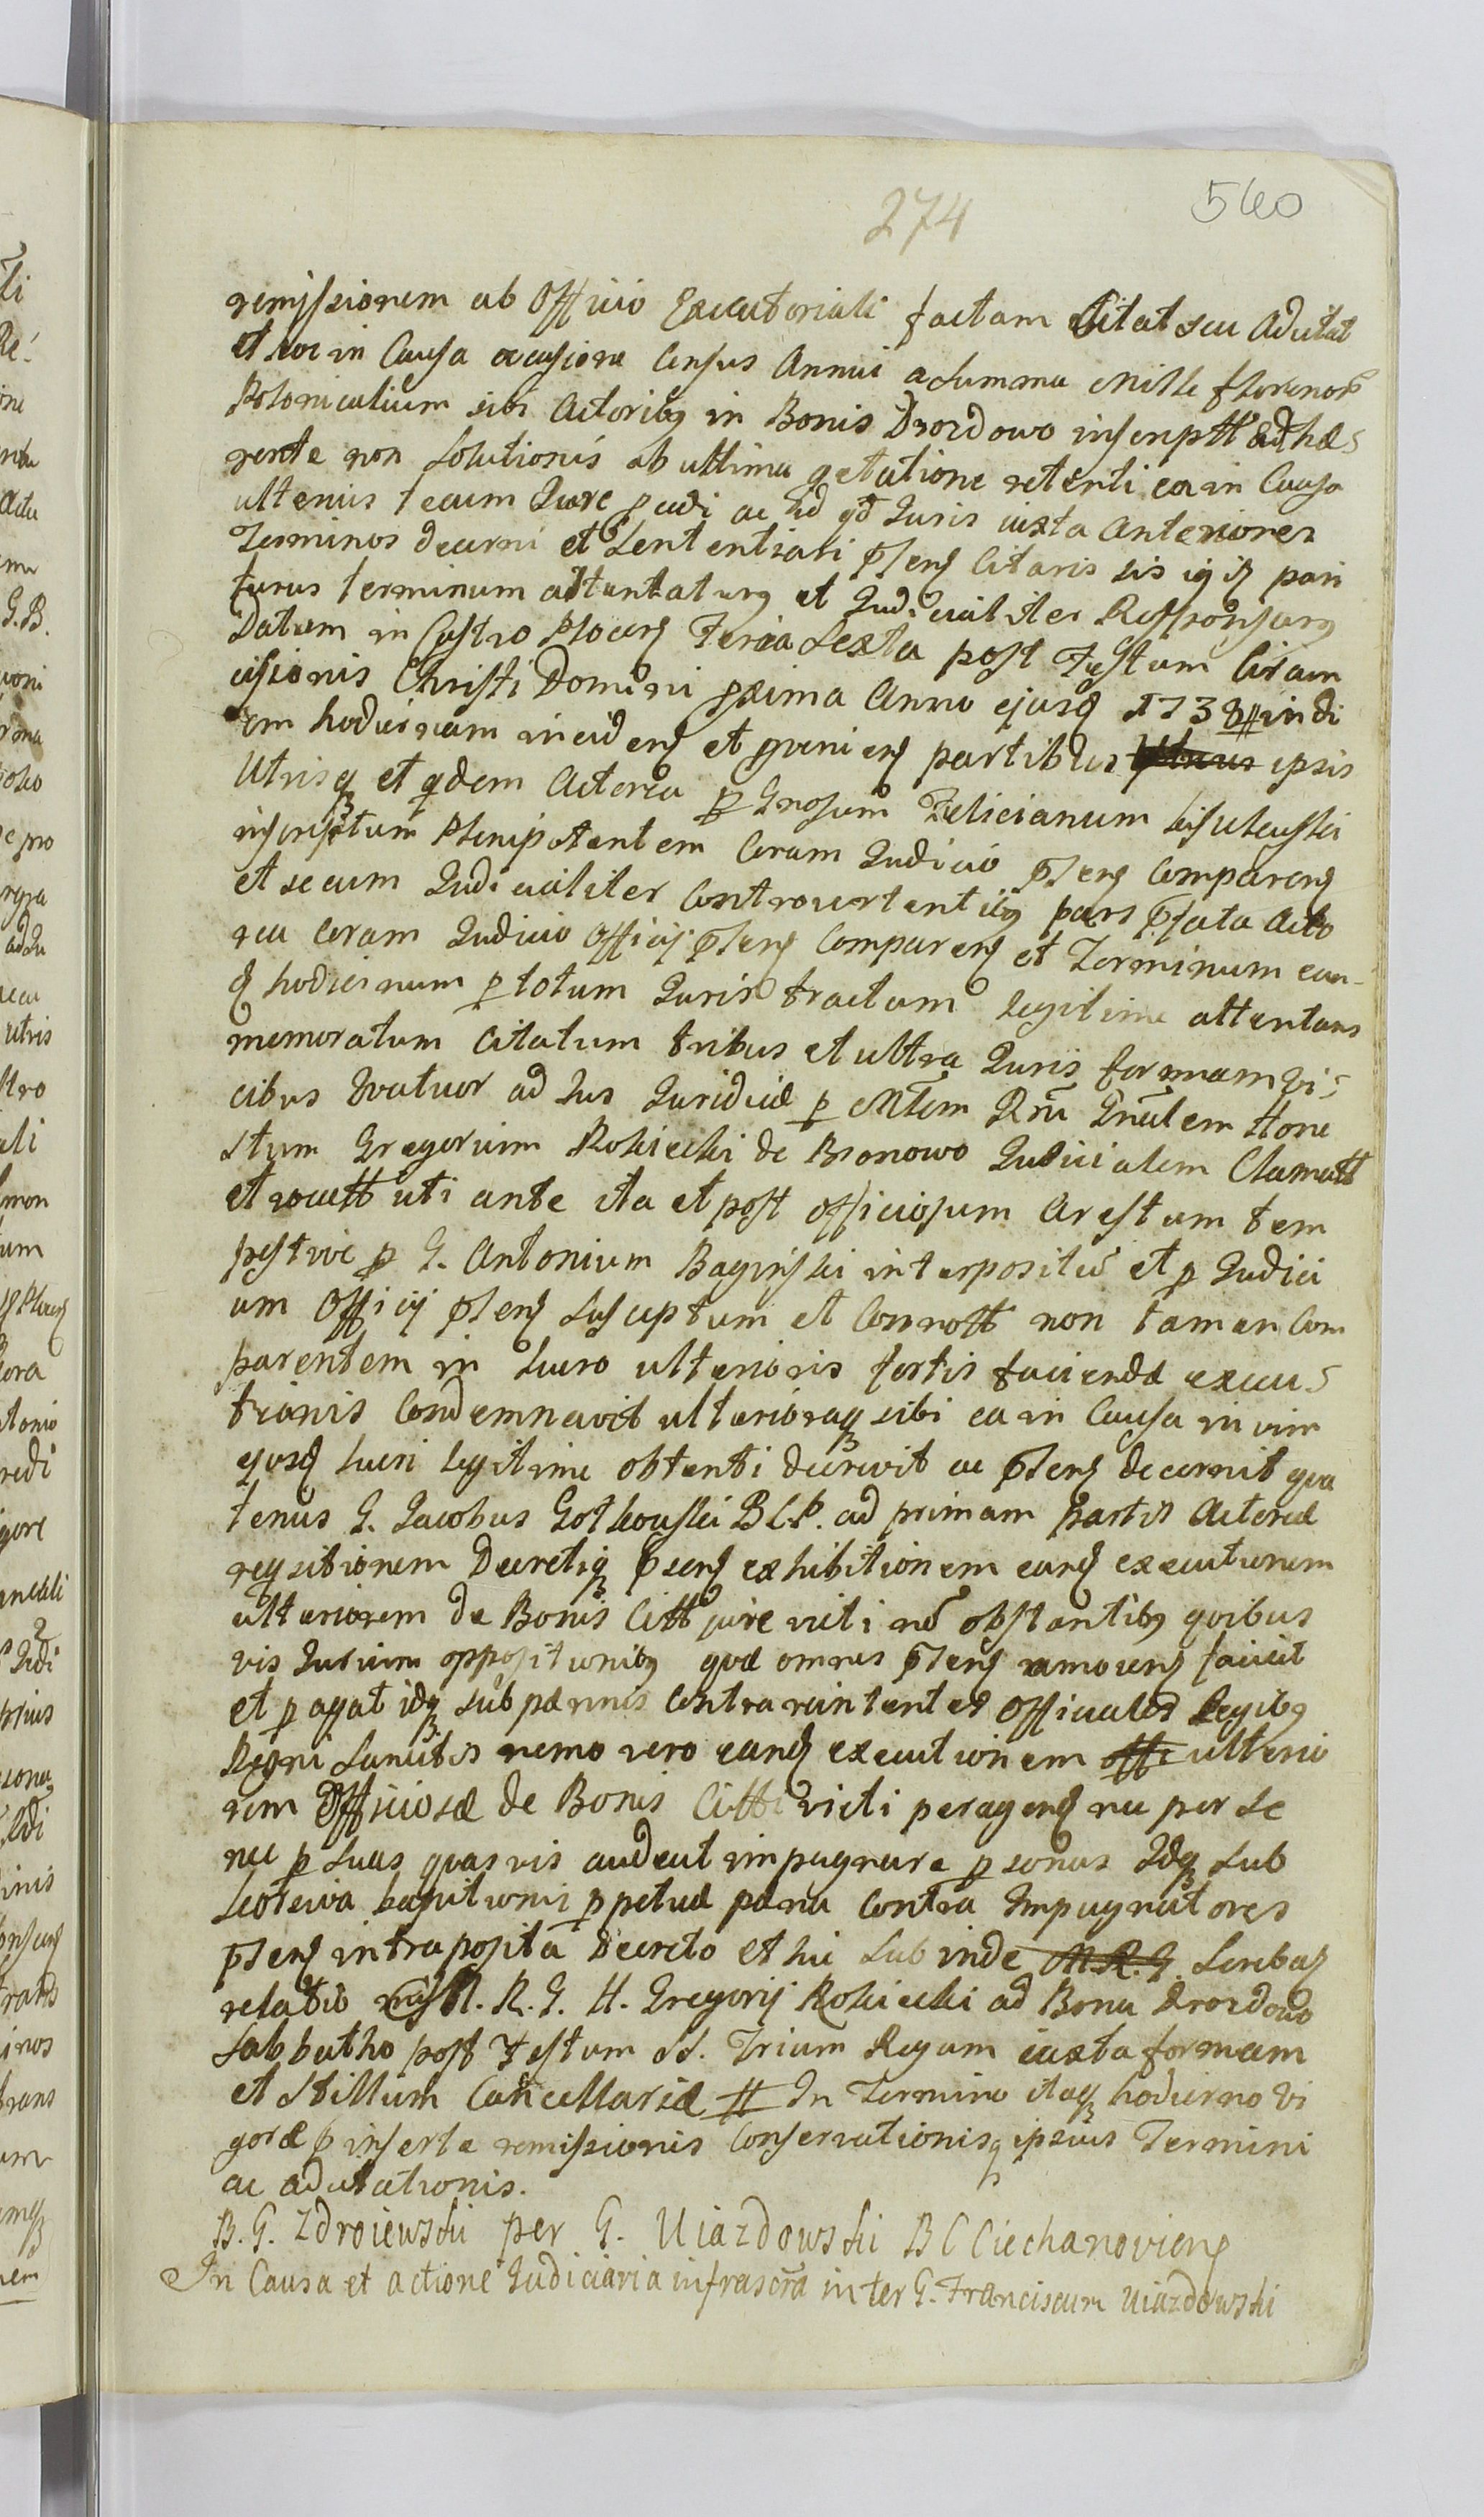 274
560
remissionem ab Officio Executoriali factam Citat seu Adcitat
et hoc in Causa occasione Census Annui a Summa Mille florenor
Polonicalium sibi Actoribq in Bonis Drozdowo inscriptt Adhæ
rente non Solutionis ab ultima qetatione retenti ea in Causa
ulterius tecum Jure pcedi ac Id qd Juris iuxta Anteriores
Terminos decerni et Sententiari pnseng Citaris sis igit pari
turus terminum attentaturq et Judicialiter Responsurq
Datum in Castro Plocens Feria Sexta post Festum Circum
cisionis Christi Domini pxima Anno ejusd 1738 # in di
em hodiernam incidens et pveniens partibus ipsis
Utrisq et qdem Actorea p Grosum Felicianum
inscriptum Plenipotentem Coram Judicio pnsens Comparens
et secum Judicialiter Controvertentibq pars pfata Acto
rea Coram Judicio Officij pnsens Comparens et Terminum eun
d hodiernum p totum Juris tractum legitime attentans
memoratum Citatum tribus et ultra Juris formam vi
cibus quatuor ad Jus Juridice p Mtem Rm Gnalem Hone
stum Gregorium Rokiecki de Bronowo Judicialem Clamatt
et vocatt uti ante ita et post officiosum Arestum tem
pestive p G. Antonium Baginski interpositu et p Judici
um Officij pnsens Susceptum et Connott non tamen Com
parentem in Lucro ulterioris fortis faciendæ execu
tionis Condemnavit ulterioraq sibi ea in Causa in vim
ejusd lucri legitime obtenti decrevit ac pnsens decernit qua
tenus G. Jacobus Gotkowski B.C.P. ad primam Partis Actoreæ
reqsitionem Decretiq pnsens exhibitionem eand executionem
ulteriorem de Bonis Citt jure victi no obstantibq quibus
vis Jurium oppositionibq quæ omnes pnsens removens faciat
et pagat idq sub pænnis Contra renitentes Officiales Legibq
Regni Sancitis nemo vero eand executionem offi ulterio
rem Officiosæ de Bonis Citti victi peragens nec per se
nec p suas quasvis audeat impugnare psonas Idq sub
Lucrativa bannitionis ppetuæ pæna Contra Impugnatores
pnsens intraposita Decreto et hic Subinde M.R.G Scribas
relatio M.R.G.H. Gregorij Rokiecki ad Bona Drozdowo
Sabbatho post Festum SS. Trium Regum iuxta formam
et Stillum Cancellariæ # In Termino itaq hodierno vi
goræ pinsertæ remissionis Conservationisq ipsius Termini
ac adcitationis.
B. G. Zdroiewski per G. Uiazdowski B C Ciechanoviens
In Causa et actione Judiciaria infrascra inter G. Franciscum Uiazdowski